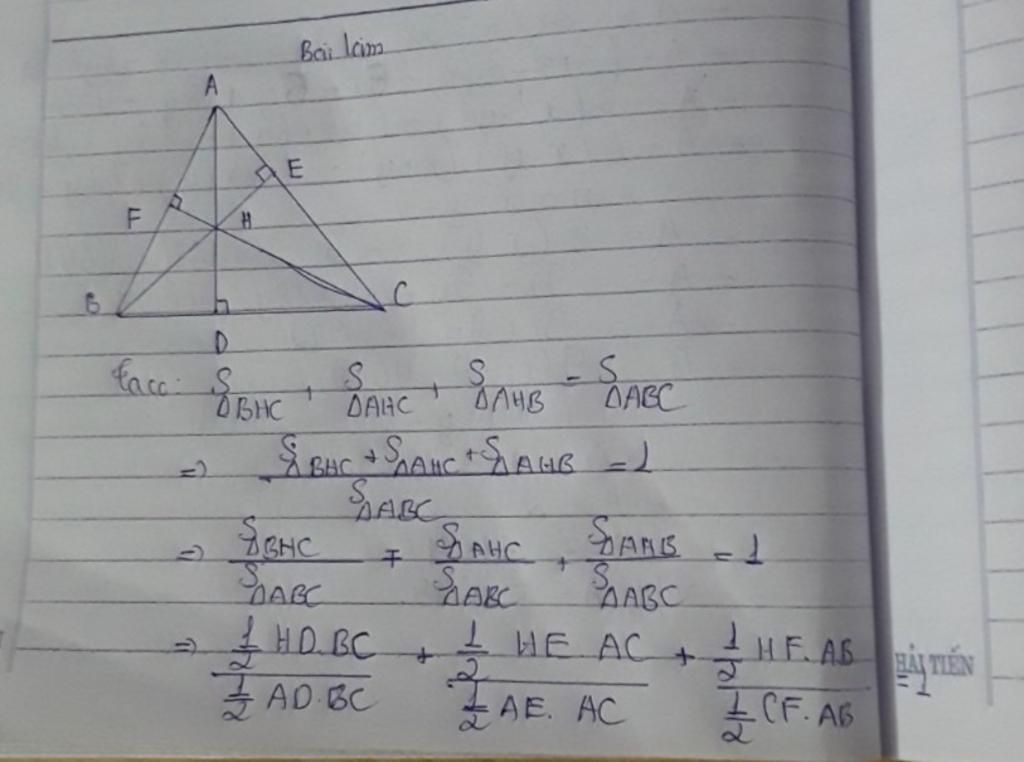 Bài làm
A
E
F
H
B
C
D
Ta có: S ΔBHC + S ΔAHC + S ΔAHB = S ΔABC
=> (SΔBHC + SΔAHC + SΔAHB) / SΔABC = 1
=> SΔBHC / SΔABC + SΔAHC / SΔABC + SΔAHB / SΔABC = 1
=> (1/2 HD.BC) / (1/2 AD.BC) + (1/2 HE AC) / (1/2 AE. AC) + (1/2 HF.AB) / (1/2 CF.AB)
HẢI TIẾN